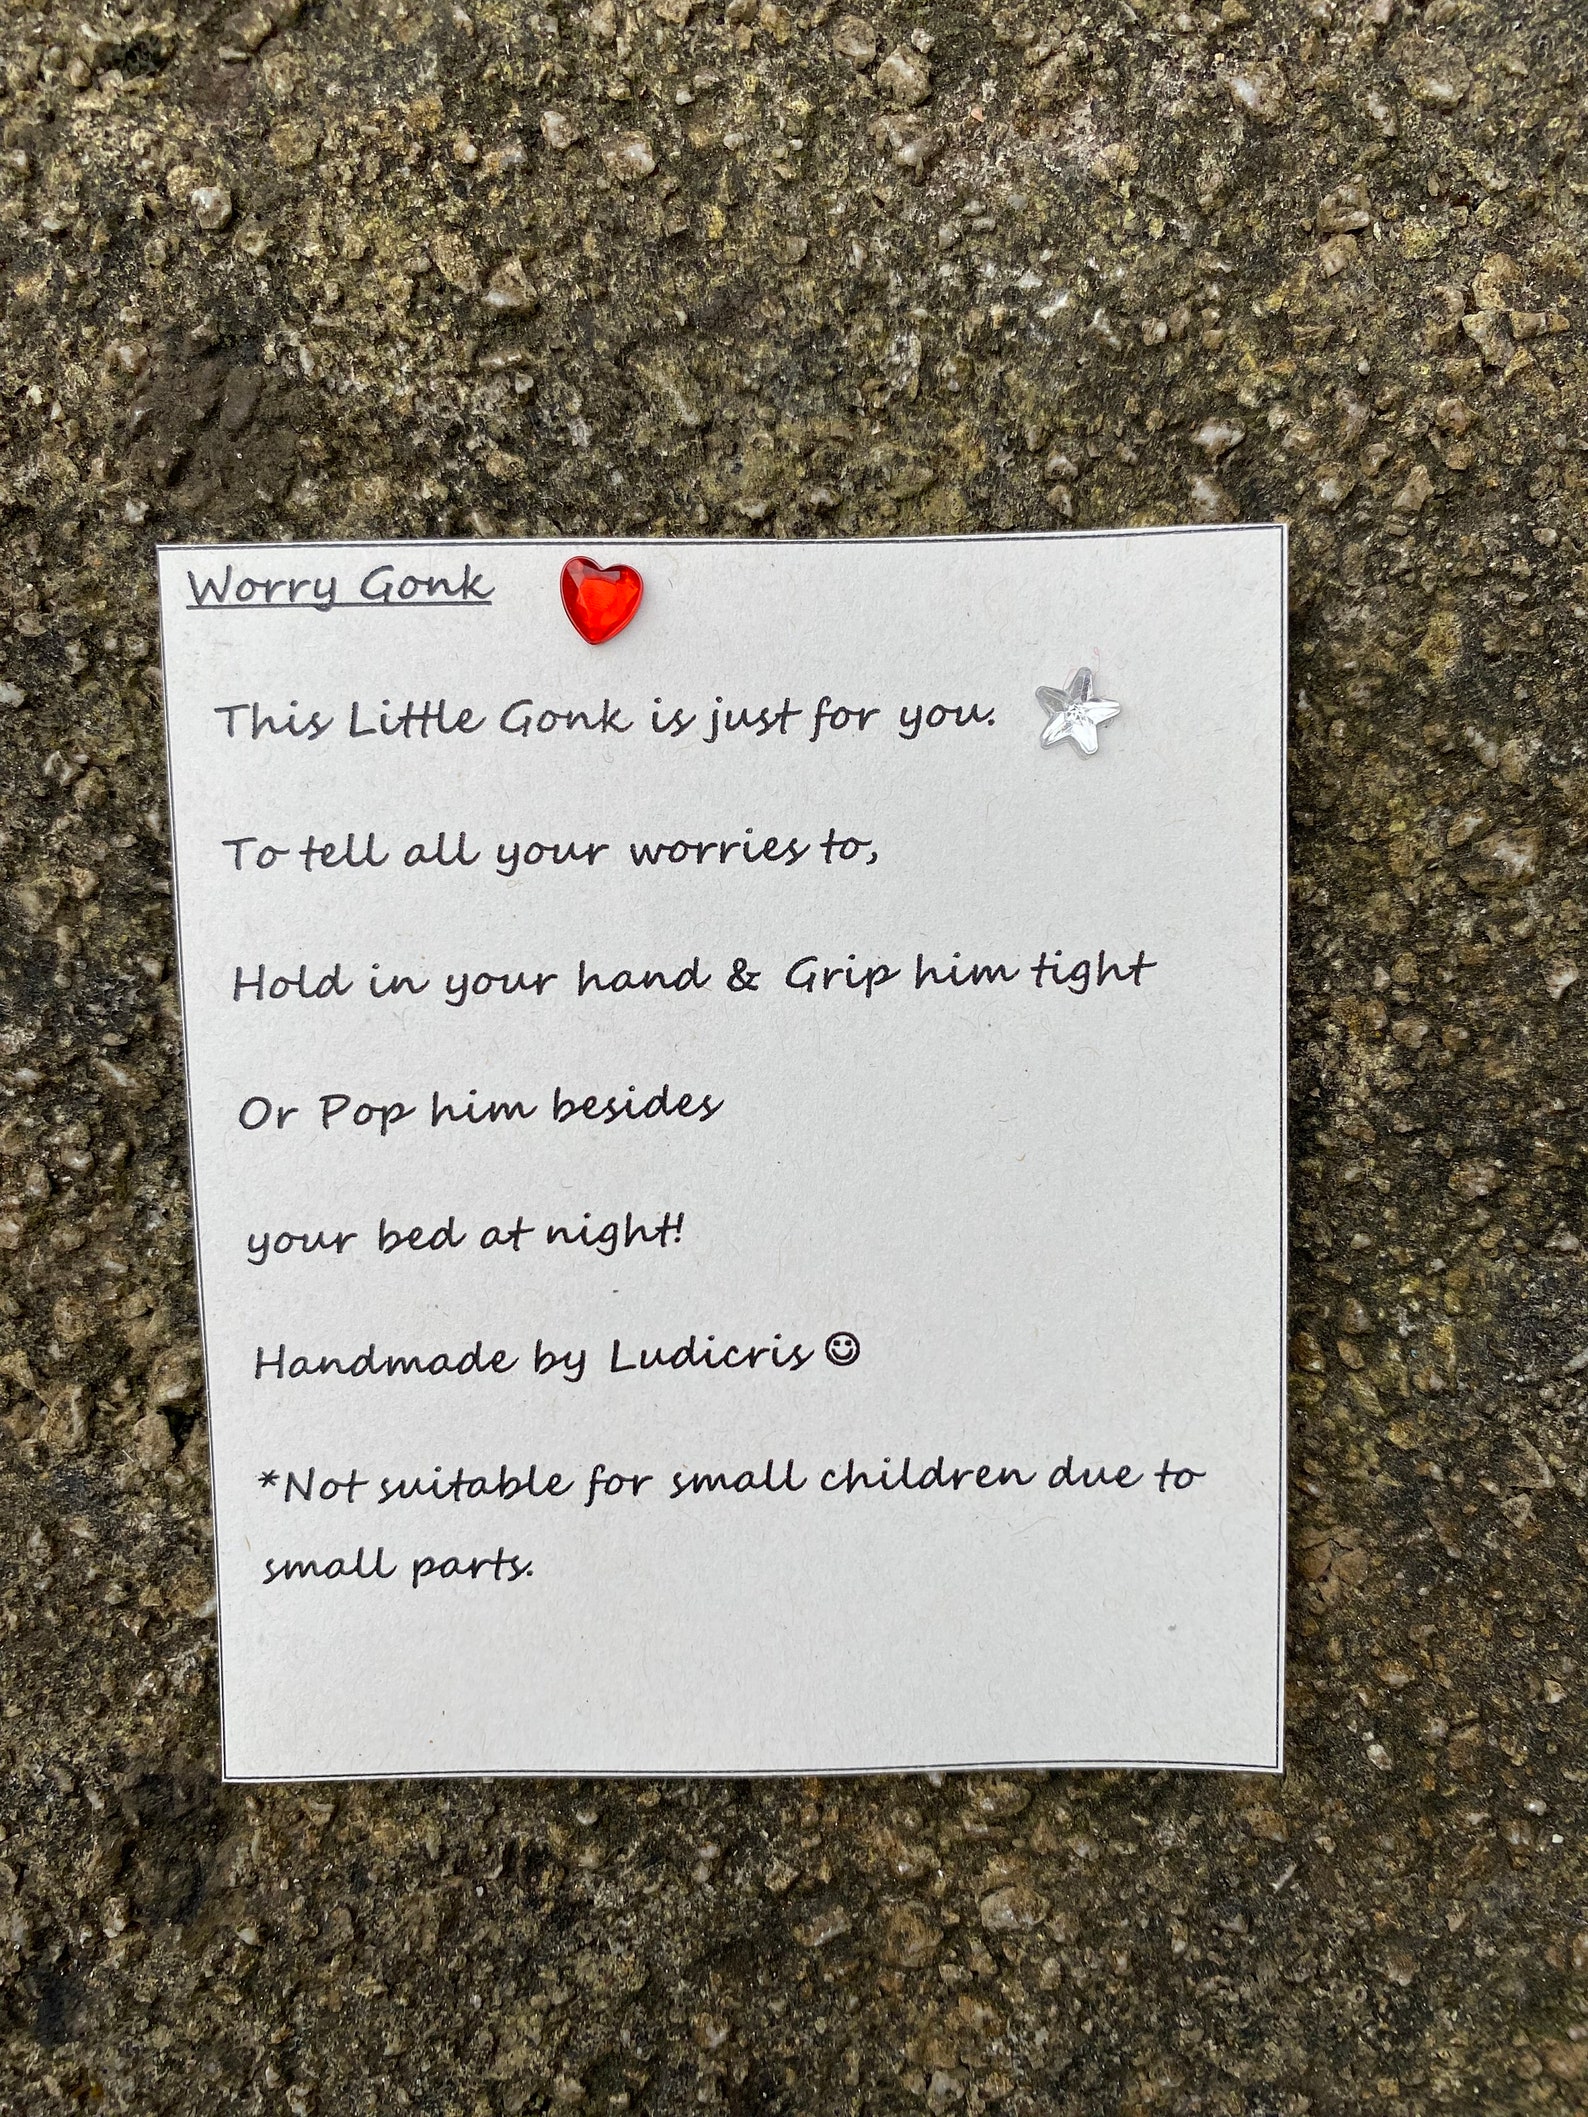 Worry Gonk
This Little Gonk is just for you.
To tell all your worries to,
Hold in your hand & Grip him tight
Or Pop him besides
your bed at night!
Handmade by Ludicris ☺
*Not suitable for small children due to
small parts.